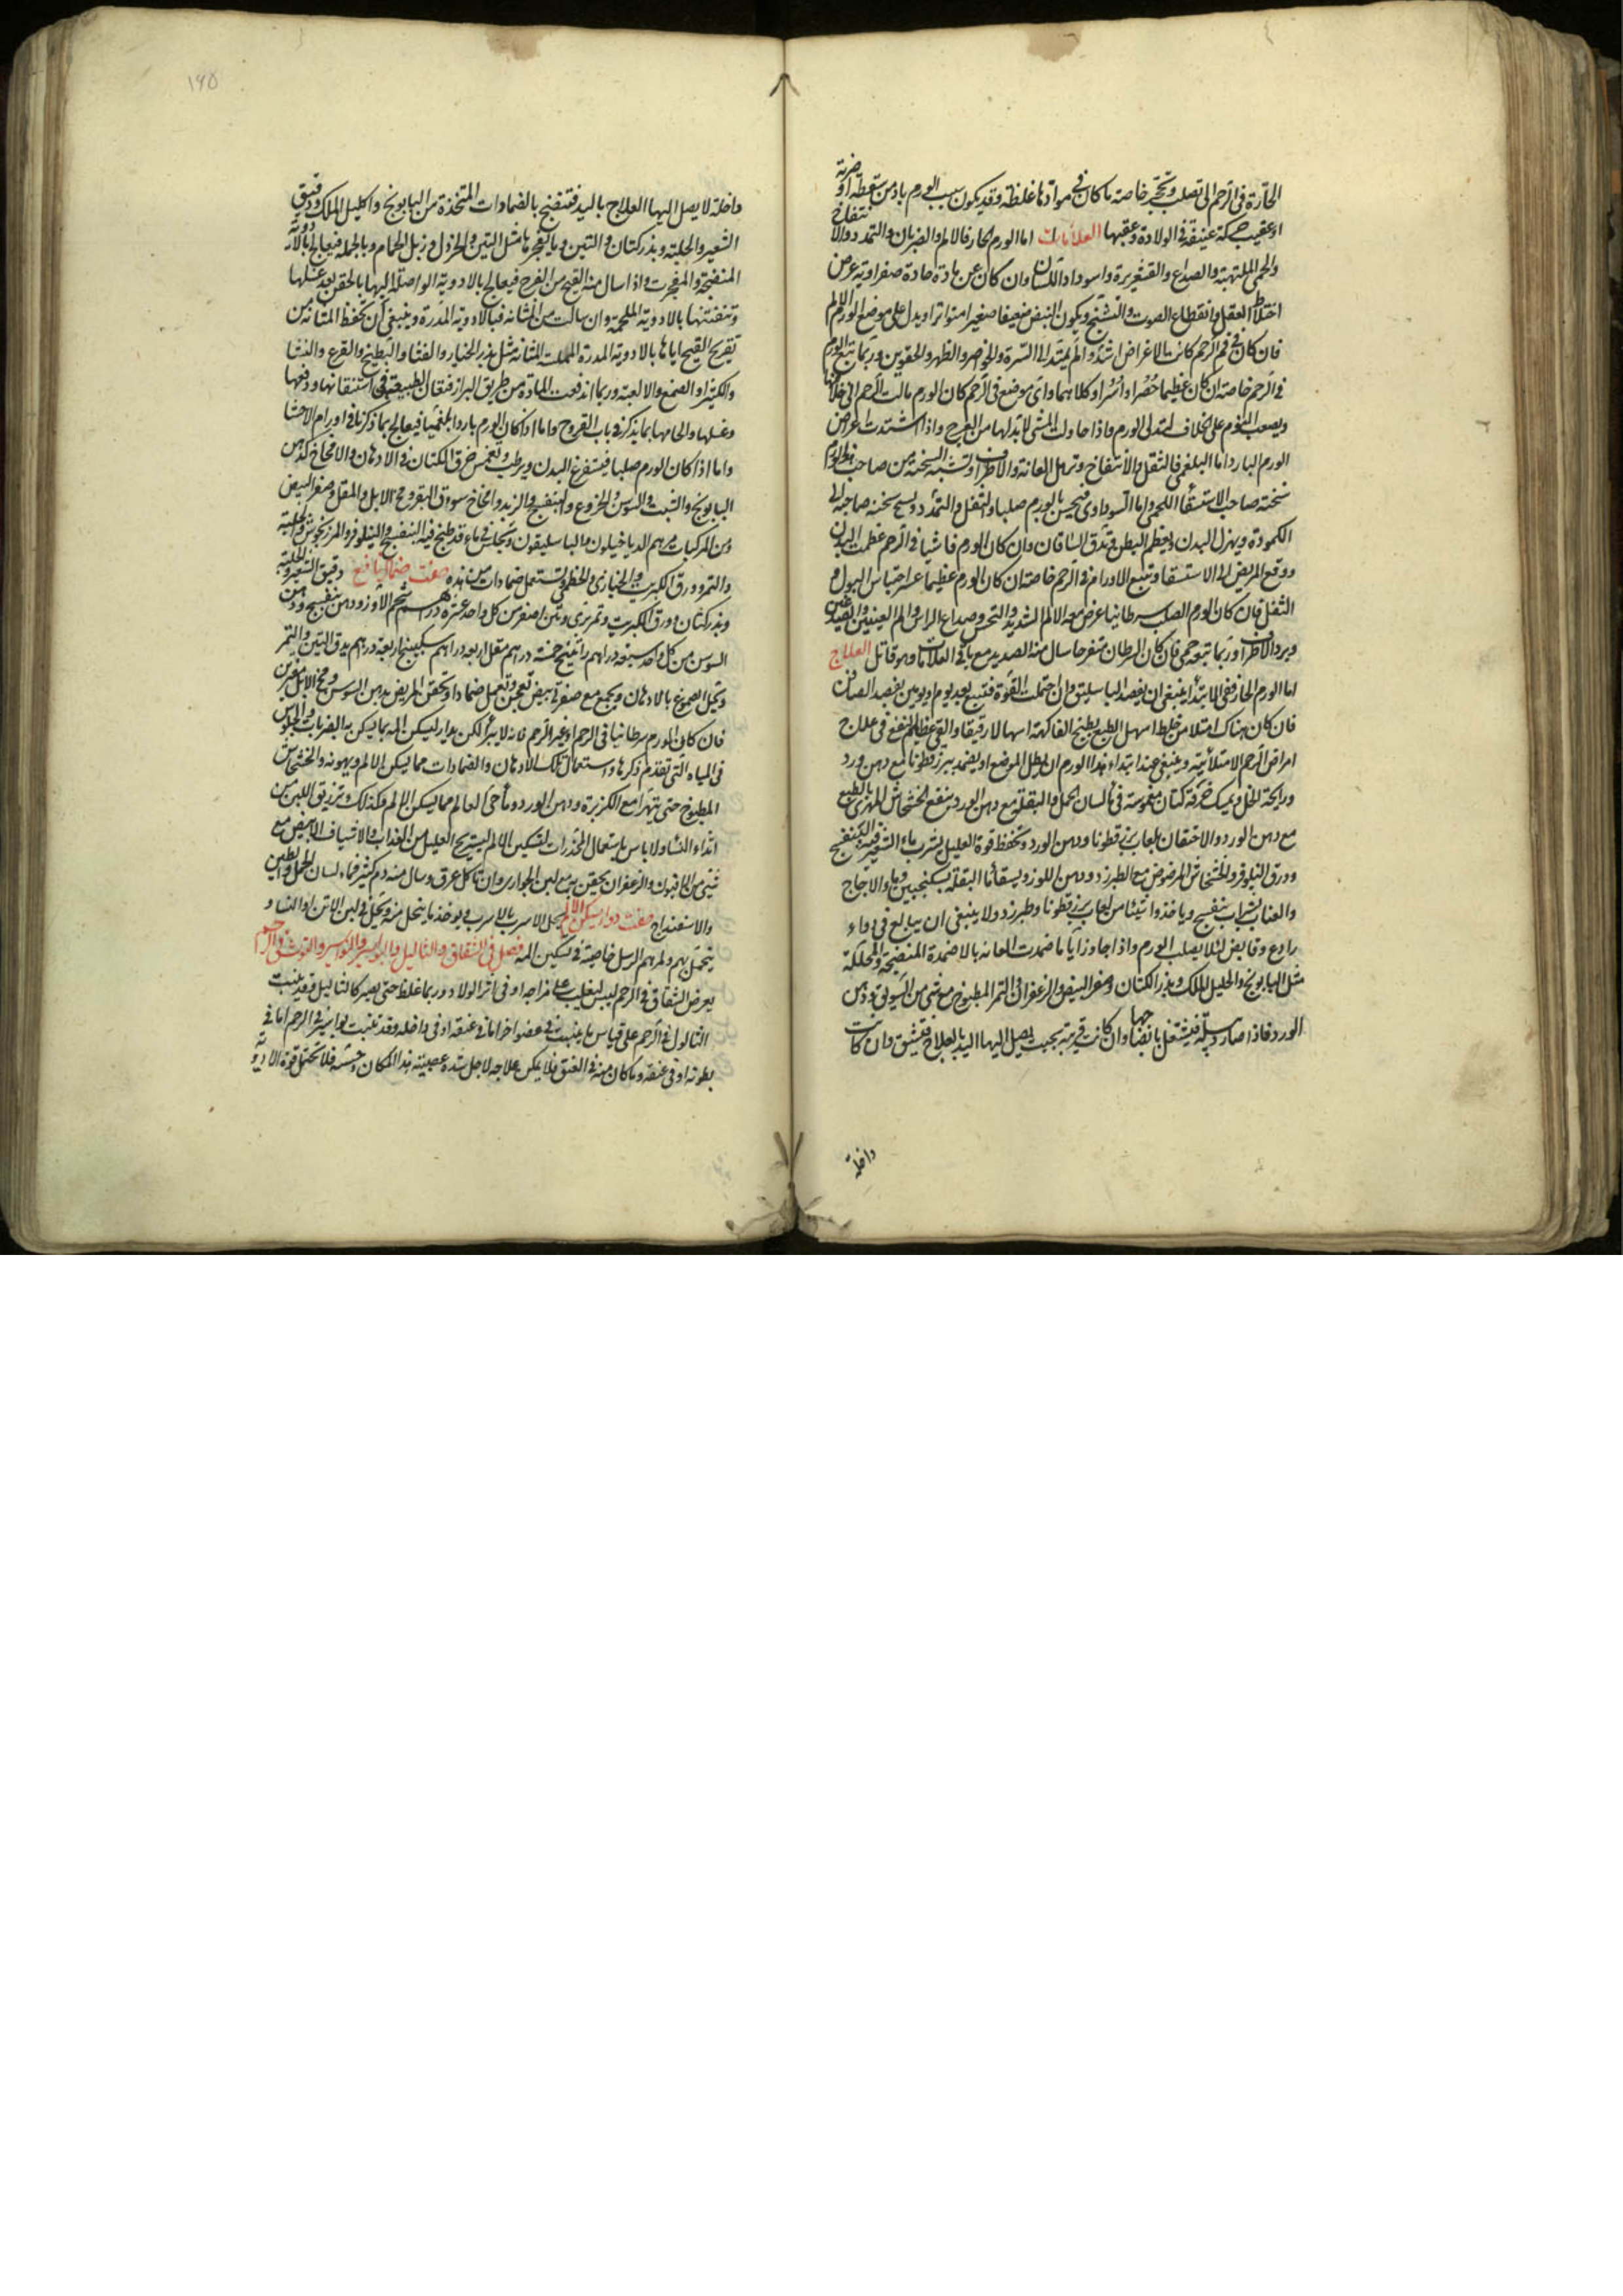 الحارة فى الرحم الى تصلب وتحجر خاصة ما كان فى موادها غلظة وقد يكون سبب الورم باد من سقطة او ضربة
او عقيب حركة عنيفة فى الولادة وعقبها العلامات اما الورم الحار فالالم والضربان والتمدد والانتفاخ
والحمى الملتهبة والصداع والقشعريرة واسوداد اللسان وان كان عن مادة حادة صفراوية عرض
اختلاط العقل وانقطاع الصوت والتشنج ويكون النبض ضعيفا صغيرا متواترا ويدل على موضع الورم الالم
فان كان فى فم الرحم كانت الاعراض اشد والم يمتد الى السرة والخواصر والظهر والحقوين وربما تبع الورم
فى الرحم خاصة ان كان عظيما حُصْرا او اُسْرا او كلاهما واى موضع فى الرحم كان الورم مالت الرحم الى خلافها
ويصعب النوم على الخلاف لتدلى الورم واذا حاولت المشى لا بد لها من العرج واذا اشتدت اعراض
الورم البارد اما البلغمى فالثقل والانتفاخ وترهل العانة والاطراف وتشبه السحنة من صاحب هذا الورم
سحنة صاحب الاستسقا اللحمى واما السوداوى فيحس بالورم صلبا والثقل والتمدد وتسمج سحنة صاحبه الى
الكمودة ويهزل البدن ويعظم البطن وتدق الساقان وان كان الورم فاشيا فى الرحم عظمت البدن
ووقع المريض الى الاستسقا وتتبع الاورام فى الرحم خاصة ان كان الورم عظيما عسر احتباس البول و
الثفل فان كان الورم الصلب سرطانيا عرض معه الالم الشديد والنخس وصداع الراس والم العينين والصدغين
وبرد الاطراف وربما تبعه حمى فان كان السرطان متقرحا سال منه الصديد مع باقى العلامات وهو قاتل العلاج
اما الورم الحار ففى الابتدا ينبغى ان يفصد الباسليق وان احتملت القوة فتتبع بعد يوم او يومين بفصد الصافن
فان كان هناك امتلا من خلط اسهل الطبع بطبيخ الفاكهة اسهالا رقيقا والقى عظيم النفع فى علاج
امراض الرحم الامتلائية وينبغى عند ابتداء هذا الورم ان يطل الموضع او يضمد ببزر قطونا مع دهن ورد
ورايحة الخل ويمسك خرقة كتان مغموسة فى ماء لسان الحمل والبقلة مع دهن الورد وينفع الخشخاش المهرى بالطبخ
مع دهن الورد والاحتقان بلعاب بزر قطونا ودهن الورد وتحفظ قوة العليل بشرب ماء الشعير فيه البنفسج
وورق النيلوفر والخشخاش المرضوض مع الطبرزد ودهن اللوز ويسقا ماء البقلة بسكنجبين وماء الاجاج
والعناب بشراب بنفسج وياخذ واتيئا من لعاب بزر قطونا وطبرزد ولا ينبغى ان يبالغ فى دواء
رادع وقابض لئلا يصلب الورم واذا جاوز اياما ضمدت العانة بالاضمدة المنضجة والمحللة
مثل البابونج واكليل الملك وبذر الكتان وصفر البيض والزعفران التمر المطبوخ مع شئ من السوق ودهن
الورد فاذا صار دبيلة فيشتغل بانضاجها وان كانت قريبة بحيث يصل اليها اليد بالعلاج فتشق وان كانت
داخلة
١٩٥
داخلة لا يصل اليها العلاج باليد فتنضج بالضمادات المتخذة من البابونج واكليل الملك ودقيق
الشعير والحلبة وبذر كتان والتين وما يفجرها مثل التين والخردل وزبل الحمام وبالجملة فيعالج بالادوية
المنضجة والمفجرة واذا سال منه القيح من الفرج فيعالج بالادوية الواصلة اليها بالحقن بعد غسلها
وتنقيتها بالادوية الملحمة وان سالت من المثانة فبالادوية المدرة وينبغى ان تحفظ المثانة من
تقريح القيح اياها بالادوية المدرة المملسة للمثانة مثل بذر الخيار والقثا والبطيخ والقرع والنشا
والكثيرا والصمغ والالعبة وربما اندفعت المادة من طريق البراز فتعان الطبيعة فى استنقائها ودفعها
وغسلها والحامها بما يذكر فى باب القروح واما اذا كان الورم باردا بلغميا فيعالج بما ذكرنا فى اورام الاحشا
واما اذا كان الورم صلبا فيستفرغ البدن ويرطب وتغمس خرق الكتان فى الادهان والامخاخ كدهن
البابونج والشبت والسوسن والخروع والبنفسج والزبد وامخاخ سوق البقر ومخ الابل والمقل وصفر البيض
ومن المركبات مرهم الدياخيلون والباسليقون وتجلس فى ماء قد طبخ فيه البنفسج والنيلوفر والمرزنجوش والحلبة
والتمر وورق الكبريت والخبازى والخطمى وتستعمل ضمادات من هذه صفت ضماد نافع دقيق الشعير والحلبة
وبذر كتان وورق الكبريت وتمر برى وتين اصفر من كل واحد عشرة دراهم شحم الاوز ودهن بنفسج ودهن
السوسن من كل واحد سبعة دراهم راتينج خمسة دراهم مقل اربعة دراهم سكبينج اربعة دراهم يدق التين والتمر
وتحل الصموغ بالادهان ويجمع مع صفرة بيض تعجن وتعمل ضمادا وتحقن المريض بدهن السوسن ومخ الابل مفترين
فان كان الورم سرطانيا فى الرحم او غير الرحم فانه لا يبرأ لكن يدار ليسكن المه بما يسكن به الضربات والجلوس
فى المياه التى تقدم ذكرها واستعمال تلك الادهان والضمادات مما يسكن الالم ويهونه والخشخاش
المطبوخ حتى يتهرا مع الكزبرة ودهن الورد وماء حى العالم مما يسكن الالم وكذلك وترزيق اللبن من
اثداء النساء ولا باس باستعمال المخدرات لتسكين الالم ليستريح العليل من العذاب والاشياف الابيض مع
شئ من الافيون والزعفران يحقن به مع لبن الجوارى وان تاكل عرق وسال منه دم كثير فماء لسان الحمل والطين
والاسفيداج صفت دواء يسكن الالم يحل الاسرب بالاسرب فيوخذ ما يتحل منه ويحل فى لبن الاتن او النسا و
يتحمل بهم ولمرهم الرسل خاصية فى تسكين المه فصل فى الشقاق والثاليل والبواسير والنواسير والتوث فى الرحم
يعرض الشقاق فى الرحم ليبس ليغلب على مزاجه او فى اثر الولاد وربما غلظ حتى يصير كالثاليل وقد ينبت
الثالول فى الرحم على قياس ما ينبت فى عضو اخر اما فى عنقه او فى داخله وقد تنبت بواسير فى الرحم اما فى
بطونه او فى عنقه وما كان منه فى العنق فلا يمكن علاجه لاجل شدة عصبية هذا المكان وحسه فلا تحتمل قوة الادوية